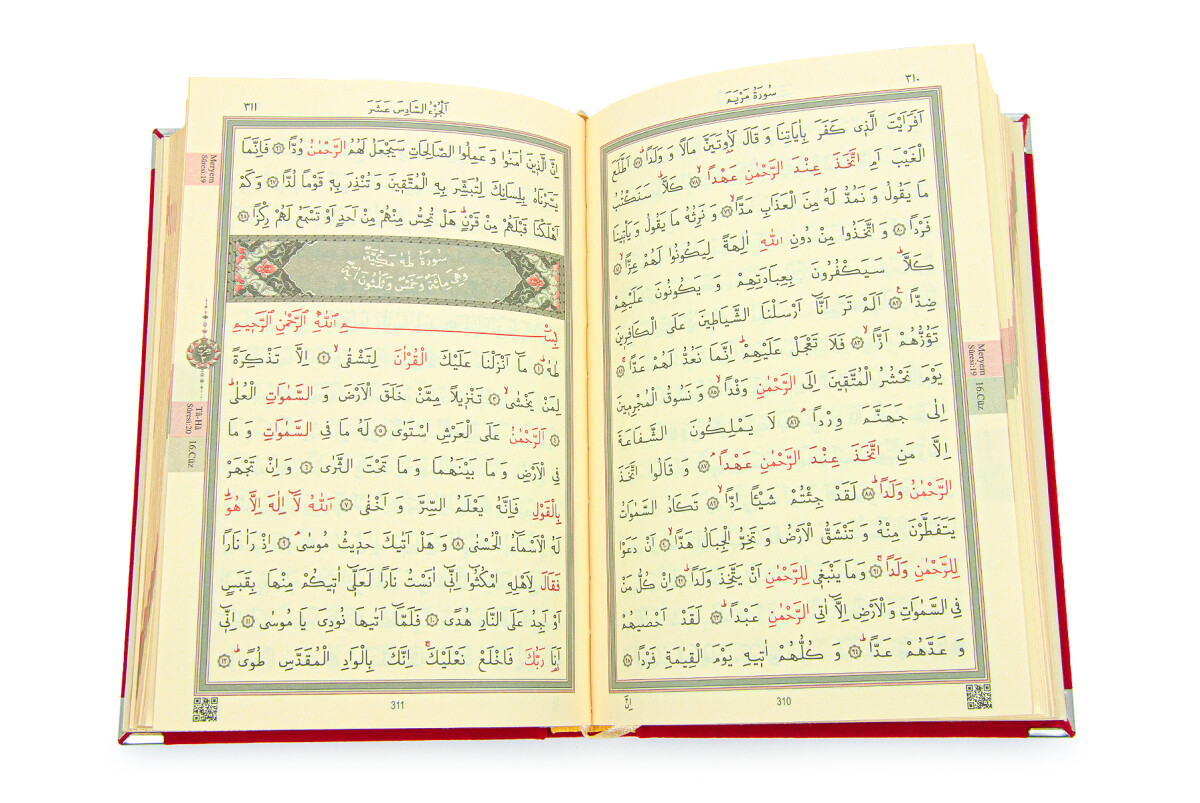 ٣١٠
سُورَةُ مَرْيَمَ
اَفَرَاَيْتَ الَّذ۪ي كَفَرَ بِاٰيَاتِنَا وَ قَالَ لَاُو۫تَيَنَّ مَالًا وَ وَلَدًاۜ ﴿٧٧﴾ اَطَّلَعَ
الْغَيْبَ اَمِ اتَّخَذَ عِنْدَ الرَّحْمٰنِ عَهْدًاۙ ﴿٧٨﴾ كَلَّاۜ سَنَكْتُبُ
مَا يَقُولُ وَ نَمُدُّ لَهُ مِنَ الْعَذَابِ مَدًّاۙ ﴿٧٩﴾ وَ نَرِثُهُ مَا يَقُولُ وَ يَأْت۪ينَا
فَرْدًا ﴿٨٠﴾ وَ اتَّخَذُوا مِنْ دُونِ اللّٰهِ اٰلِهَةً لِيَكُونُوا لَهُمْ عِزًّاۙ ﴿٨١﴾
كَلَّاۜ سَيَكْفُرُونَ بِعِبَادَتِهِمْ وَ يَكُونُونَ عَلَيْهِمْ
ضِدًّاۚ ﴿٨٢﴾ اَلَمْ تَرَ اَنَّٓا اَرْسَلْنَا الشَّيَاط۪ينَ عَلَى الْكَافِر۪ينَ
تَؤُزُّهُمْ اَزًّاۙ ﴿٨٣﴾ فَلَا تَعْجَلْ عَلَيْهِمْۜ اِنَّمَا نَعُدُّ لَهُمْ عَدًّاۚ ﴿٨٤﴾
يَوْمَ نَحْشُرُ الْمُتَّق۪ينَ اِلَى الرَّحْمٰنِ وَفْدًاۙ ﴿٨٥﴾ وَ نَسُوقُ الْمُجْرِم۪ينَ
اِلٰى جَهَنَّمَ وِرْدًاۢ ﴿٨٦﴾ لَا يَمْلِكُونَ الشَّفَاعَةَ
اِلَّا مَنِ اتَّخَذَ عِنْدَ الرَّحْمٰنِ عَهْدًاۢ ﴿٨٧﴾ وَ قَالُوا اتَّخَذَ
الرَّحْمٰنُ وَلَدًاۜ ﴿٨٨﴾ لَقَدْ جِئْتُمْ شَيْـًٔا اِدًّاۙ ﴿٨٩﴾ تَكَادُ السَّمٰوَاتُ
يَتَفَطَّرْنَ مِنْهُ وَ تَنْشَقُّ الْاَرْضُ وَ تَخِرُّ الْجِبَالُ هَدًّاۙ ﴿٩٠﴾ اَنْ دَعَوْا
لِلرَّحْمٰنِ وَلَدًاۚ ﴿٩١﴾ وَ مَا يَنْبَغ۪ي لِلرَّحْمٰنِ اَنْ يَتَّخِذَ وَلَدًاۜ ﴿٩٢﴾ اِنْ كُلُّ مَنْ
فِي السَّمٰوَاتِ وَ الْاَرْضِ اِلَّٓا اٰتِي الرَّحْمٰنِ عَبْدًاۜ ﴿٩٣﴾ لَقَدْ اَحْصٰيهُمْ
وَ عَدَّهُمْ عَدًّاۜ ﴿٩٤﴾ وَ كُلُّهُمْ اٰت۪يهِ يَوْمَ الْقِيٰمَةِ فَرْدًا ﴿٩٥﴾
اِنَّ
310
Meryem
Sûresi:19
16.Cüz
اَلْجُزْءُ السَّادِسَ عَشَرَ
٣١١
اِنَّ الَّذ۪ينَ اٰمَنُوا وَ عَمِلُوا الصَّالِحَاتِ سَيَجْعَلُ لَهُمُ الرَّحْمٰنُ وُدًّا ﴿٩٦﴾ فَاِنَّمَا
يَسَّرْنَاهُ بِلِسَانِكَ لِتُبَشِّرَ بِهِ الْمُتَّق۪ينَ وَ تُنْذِرَ بِه۪ قَوْمًا لُدًّا ﴿٩٧﴾ وَ كَمْ
اَهْلَكْنَا قَبْلَهُمْ مِنْ قَرْنٍۜ هَلْ تُحِسُّ مِنْهُمْ مِنْ اَحَدٍ اَوْ تَسْمَعُ لَهُمْ رِكْزًا ﴿٩٨﴾
سُورَةُ طٰهٰ مَكِّيَّةٌ
وَهِيَ مِائَةٌ وَخَمْسٌ وَثَلٰثُونَ اٰيَةً
بِسْمِ اللّٰهِ الرَّحْمٰنِ الرَّح۪يمِ
طٰهٰۜ ﴿١﴾ مَٓا اَنْزَلْنَا عَلَيْكَ الْقُرْاٰنَ لِتَشْقٰىۙ ﴿٢﴾ اِلَّا تَذْكِرَةً
لِمَنْ يَخْشٰىۙ ﴿٣﴾ تَنْز۪يلًا مِمَّنْ خَلَقَ الْاَرْضَ وَ السَّمٰوَاتِ الْعُلٰىۜ
﴿٤﴾ اَلرَّحْمٰنُ عَلَى الْعَرْشِ اسْتَوٰى ﴿٥﴾ لَهُ مَا فِي السَّمٰوَاتِ وَ مَا
فِي الْاَرْضِ وَ مَا بَيْنَهُمَا وَ مَا تَحْتَ الثَّرٰى ﴿٦﴾ وَ اِنْ تَجْهَرْ
بِالْقَوْلِ فَاِنَّهُ يَعْلَمُ السِّرَّ وَ اَخْفٰى ﴿٧﴾ اَللّٰهُ لَٓا اِلٰهَ اِلَّا هُوَۜ
لَهُ الْاَسْمَٓاءُ الْحُسْنٰى ﴿٨﴾ وَ هَلْ اَتٰيكَ حَد۪يثُ مُوسٰىۢ ﴿٩﴾ اِذْ رَاٰ نَارًا
فَقَالَ لِاَهْلِهِ امْكُثُٓوا اِنّ۪ٓي اٰنَسْتُ نَارًا لَعَلّ۪ٓي اٰت۪يكُمْ مِنْهَا بِقَبَسٍ
اَوْ اَجِدُ عَلَى النَّارِ هُدًى ﴿١٠﴾ فَلَمَّٓا اَتٰيهَا نُودِيَ يَا مُوسٰى ﴿١١﴾ اِنّ۪ٓي
اَنَا۬ رَبُّكَ فَاخْلَعْ نَعْلَيْكَۚ اِنَّكَ بِالْوَادِ الْمُقَدَّسِ طُوًىۜ ﴿١٢﴾
311
Meryem
Sûresi:19
Tâ-Hâ
Sûresi:20
16.Cüz